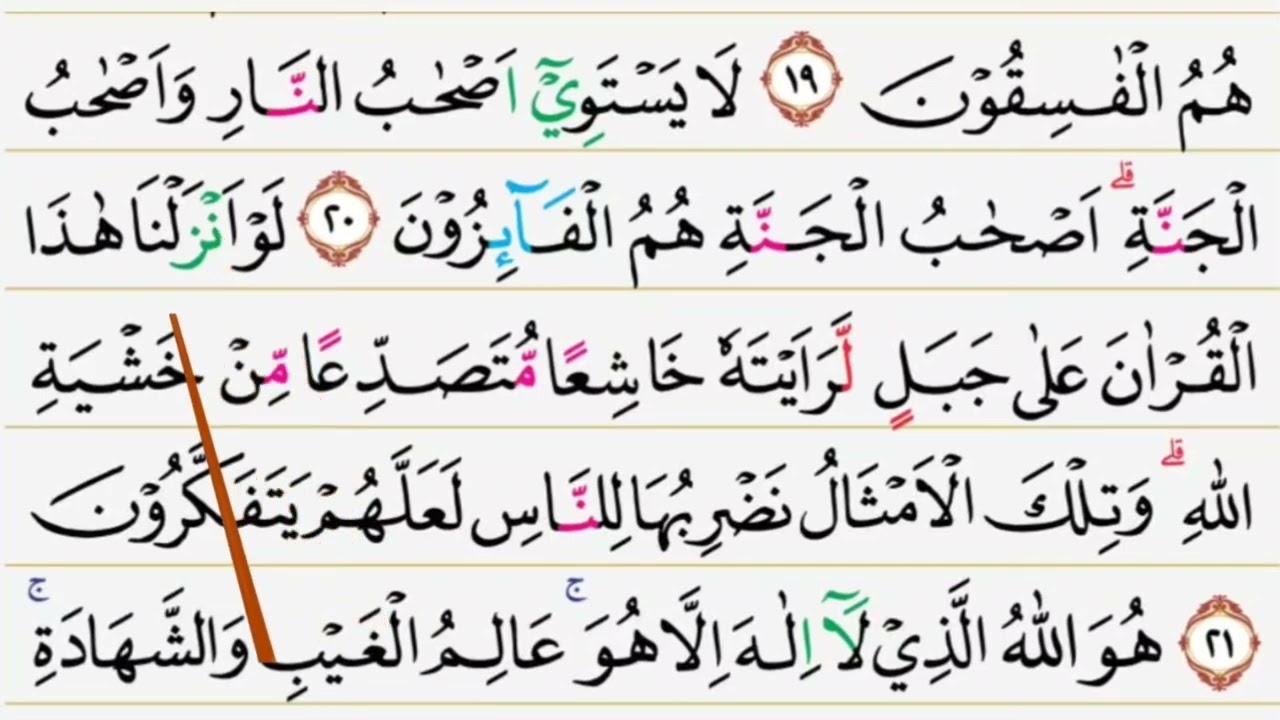 هُمُ الْفٰسِقُوْنَ ١٩ لَا يَسْتَوِيْٓ اَصْحٰبُ النَّارِ وَاَصْحٰبُ
الْجَنَّةِ ۗ اَصْحٰبُ الْجَنَّةِ هُمُ الْفَاۤىِٕزُوْنَ ٢٠ لَوْ اَنْزَلْنَا هٰذَا
الْقُرْاٰنَ عَلٰى جَبَلٍ لَّرَاَيْتَهٗ خَاشِعًا مُّتَصَدِّعًا مِّنْ خَشْيَةِ
اللّٰهِ ۗ وَتِلْكَ الْاَمْثَالُ نَضْرِبُهَا لِلنَّاسِ لَعَلَّهُمْ يَتَفَكَّرُوْنَ
٢١ هُوَ اللّٰهُ الَّذِيْ لَآ اِلٰهَ اِلَّا هُوَ ۚ عَالِمُ الْغَيْبِ وَالشَّهَادَةِ ۚ